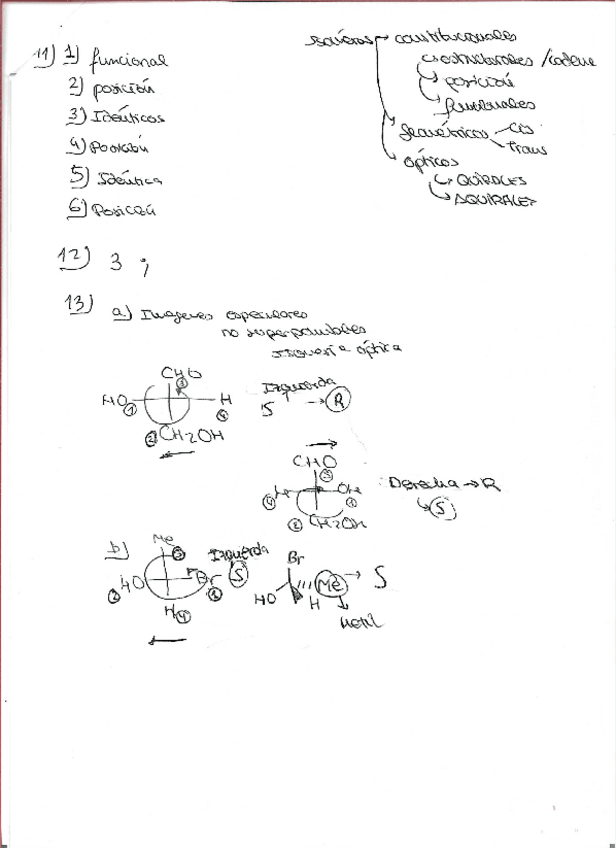 11) 1) funcional
2) posición
3) Idénticos
4) Posición
5) Idéntica
6) Posición
Isómeros constitucionales
estructurales /cadena
posición
funcionales
Geométricos Cis
Trans
ópticos
QUIRALES
AQUIRALES
12) 3 ;
13) a) Imagenes especulares
no superponibles
Isomería óptica
CHO
3
HO 1 H
4
2 CH2OH
Izquierda
S → R
CHO
3
4 OH
1
2 CH2OH
Derecha → R
S
b) Me
3
2 HO Br
1
H 4
Izquierda
S
Br
HO H Me → S
Metil